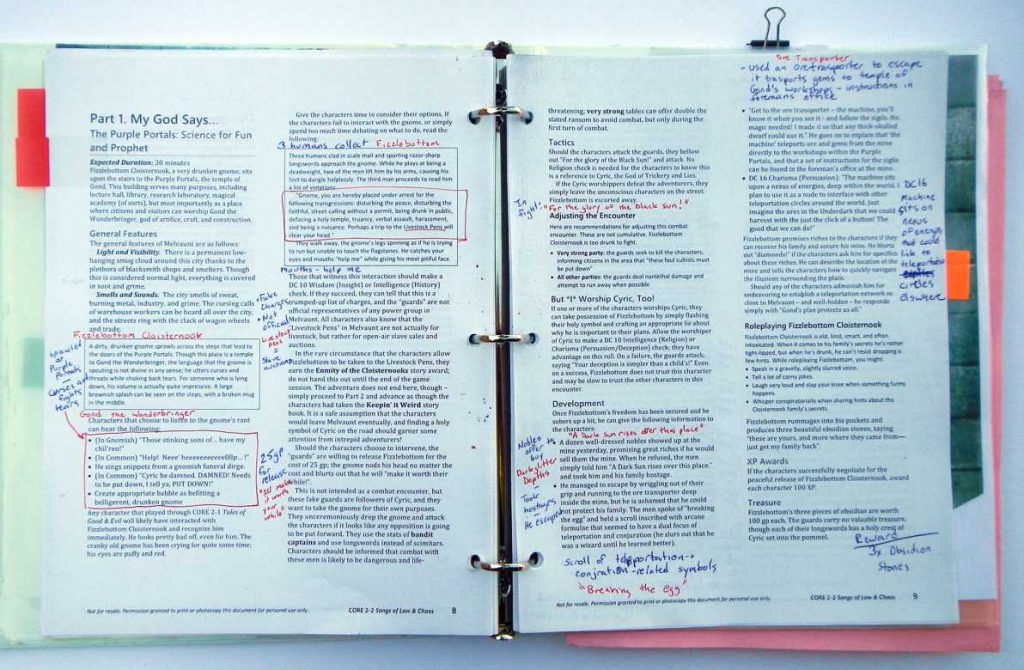 Part 1. My God Says...
The Purple Portals: Science for Fun
and Prophet
Expected Duration: 30 minutes
Fizzlebottom Cloisternook, a very drunken gnome, sits
upon the stairs to the Purple Portals, the temple of
Gond. This building serves many purposes, including
lecture hall, library, research laboratory, magical
academy (of sorts), but most importantly as a place
where citizens and visitors can worship Gond the
Wonderbringer, god of artifice, craft, and construction.
General Features
The general features of Melvaunt are as follows:
Light and Visibility. There is a permanent low-
hanging smog cloud around this city thanks to the
plethora of blacksmith shops and smelters. Though
this is considered normal light, everything is covered
in soot and grime.
Smells and Sounds. The city smells of sweat,
burning metal, industry, and grime. The cursing calls
of warehouse workers can be heard all over the city,
and the streets ring with the clack of wagon wheels
and trade.
Fizzlebottom Cloisternook
A dirty, drunken gnome sprawls across the steps that lead
to the doors of the Purple Portals. Though this place is a
temple to Gond the Wonderbringer, the language that the gnome is
spouting is not divine in any sense; he utters curses and
threats while choking back tears. For someone who is lying
down, his volume is actually quite impressive. A large
brownish splash can be seen on the steps, with a broken mug
in the middle.
sprawled
Purple
Portals
curses and
fights
tears
Gond the Wonderbringer
Characters that choose to listen to the gnome's rant
can hear the following:
• (In Gnomish) "Those stinking sons of... have my
chil'ren!"
• (In Common) "Help! Neve' heeeeeeeeeelllp... !"
• He sings snippets from a gnomish funeral dirge.
• (In Common) "Cyric be damned. DAMNED! Needs
to be put down, I tell ya, PUT DOWN!"
• Create appropriate babble as befitting a
belligerent, drunken gnome
Any character that played through CORE 2-1 Tales of
Good & Evil will likely have interacted with
Fizzlebottom Cloisternook and recognize him
immediately. He looks pretty bad off, even for him. The
cranky old gnome has been crying for quite some time;
his eyes are puffy and red.
Give the characters time to consider their options. If
the characters fail to interact with the gnome, or simply
spend too much time debating on what to do, read the
following:
3 humans collect Fizzlebottom
Three humans clad in scale mail and sporting razor sharp
longswords approach the gnome. While he plays at being a
deadweight, two of the men lift him by his arms, causing his
feet to dangle helplessly. The third man proceeds to read him
a list of violations.
"Gnome, you are hereby placed under arrest for the
following transgressions: disturbing the peace, disturbing the
faithful, street calling without a permit, being drunk in public,
defacing a holy temple, truancy, verbal assault, harassment,
and being a nuisance. Perhaps a trip to the Livestock Pens will
clear your head."
They walk away, the gnome's legs spinning as if he is trying
to run but unable to touch the flagstones. He catches your
eyes and mouths "help me" while giving his most pitiful face.
mouths - help me
Those that witness this interaction should make a
DC 10 Wisdom (Insight) or Intelligence (History)
check. If they succeed, they can tell that this is a
trumped-up list of charges, and the "guards" are not
official representatives of any power group in
Melvaunt. All characters also know that the
"Livestock Pens" in Melvaunt are not actually for
livestock, but rather for open-air slave sales and
auctions.
- Fake
charges
- Not
official
Livestock
Pens
=
slave
auctions
In the rare circumstance that the characters allow
Fizzlebottom to be taken to the Livestock Pens, they
earn the Enmity of the Cloisternooks story award;
do not hand this out until the end of the game
session. The adventure does not end here, though –
simply proceed to Part 2 and advance as though the
characters had taken the Keepin' it Weird story
hook. It is a safe assumption that the characters
would leave Melvaunt eventually, and finding a holy
symbol of Cyric on the road should garner some
attention from intrepid adventurers!
Should the characters choose to intervene, the
"guards" are willing to release Fizzlebottom for the
cost of 25 gp; the gnome nods his head no matter the
cost and blurts out that he will "make it worth their
while!".
25gp
for
release
"will make
it worth
your
while"
This is not intended as a combat encounter, but
these fake guards are followers of Cyric, and they
want to take the gnome for their own purposes.
They unceremoniously drop the gnome and attack
the characters if it looks like any opposition is going
to be put forward. They use the stats of bandit
captains and use longswords instead of scimitars.
Characters should be informed that combat with
these men is likely to be dangerous and life-
Not for resale. Permission granted to print or photocopy this document for personal use only.
CORE 2-2 Songs of Law & Chaos
8
threatening; very strong tables can offer double the
stated ransom to avoid combat, but only during the
first turn of combat.
Tactics
Should the characters attack the guards, they bellow
out "For the glory of the Black Sun!" and attack. No
Religion check is needed for the characters to know this
is a reference to Cyric, the God of Trickery and Lies.
If the Cyric worshippers defeat the adventurers, they
simply leave the unconscious characters on the street.
Fizzlebottom is escorted away.
In
fight:
"For the glory of the black sun!"
Adjusting the Encounter
Here are recommendations for adjusting this combat
encounter. These are not cumulative. Fizzlebottom
Cloisternook is too drunk to fight.
• Very strong party: the guards seek to kill the characters,
informing citizens in the area that "these foul cultists must
be put down"
• All other parties: the guards deal nonlethal damage and
attempt to flee
But *I* Worship Cyric, Too!
If one or more of the characters worships Cyric, they
can take possession of Fizzlebottom by simply flashing
their holy symbol and crafting an appropriate lie about
why he is important to their plans. Allow the worshiper
of Cyric to make a DC 10 Intelligence (Religion) or
Charisma (Persuasion/Deception) check; they have
advantage on this roll. On a failure, the guards attack,
saying "Your deception is simpler than a child's!" Even
on a success, Fizzlebottom does not trust this character
and may be slow to trust the other characters in this
encounter.
Development
Once Fizzlebottom's freedom has been secured and he
sobers up a bit, he can give the following information to
the characters:
"A Dark Sun rises over this place"
• A dozen well-dressed nobles showed up at the
mine yesterday, promising great riches if he would
sell them the mine. When he refused, the men
simply told him "A Dark Sun rises over this place."
and took him and his family hostage.
• He managed to escape by wriggling out of their
grip and running to the ore transporter deep
inside the mine, but he is ashamed that he could
not protect his family. The men spoke of "breaking
the egg" and held a scroll inscribed with arcane
formulae that seemed to have a dual focus of
teleportation and conjuration (he slurs out that he
was a wizard until he learned better).
Nobles
offer
to
buy
Darkglitter
Depths
- Took
hostages
- He escaped
Scroll of teleportation +
conjration-related symbols
"Breaking the egg"
Not for resale. Permission granted to print or photocopy this document for personal use only.
CORE 2-2 Songs of Law & Chaos
9
Ore Transporter
- used an oretrasporter to escape
it trasports gems to temple of
Gond's workshops - instructions in
foremans office
• "Get to the ore transporter – the machine, you'll
know it when you see it – and follow the sigils. No
magic needed! I made it so that any thick-skulled
dwarf could use it." He goes on to explain that 'the
machine' teleports ore and gems from the mine
directly to the workshops within the Purple
Portals, and that a set of instructions for the sigils
can be found in the foreman's office at the mine.
• DC 16 Charisma (Persuasion): "The machine sits
upon a nexus of energies, deep within the world. I
plan to use it as a node to interface with other
teleportation circles around the world. Just
imagine the ores in the Underdark that we could
harvest with the just the click of a button! The
good that we can do!"
DC16
Machine
sits on
nexus
of energys
that could
link to
teleportation
circles
elswhere
Fizzlebottom promises riches to the characters if they
can recover his family and secure his mine. He blurts
out "diamonds!" if the characters ask him for specifics
about these riches. He can describe the location of the
mine and tells the characters how to quickly navigate
the illusions surrounding the place.
Should any of the characters admonish him for
endeavouring to establish a teleportation network so
close to Melvaunt – and well-hidden – he responds
simply with "Gond's plan protects us all."
Roleplaying Fizzlebottom Cloisternook
Fizzlebottom Cloisternook is old, kind, smart, and often
intoxicated. When it comes to his family's secrets he's rather
tight-lipped, but when he's drunk, he can't resist dropping a
few hints. While roleplaying Fizzlebottom, you might:
• Speak in a gravelly, slightly slurred voice.
• Tell a lot of corny jokes.
• Laugh very loud and slap your knee when something funny
happens.
• Whisper conspiratorially when sharing hints about the
Cloisternook family's secrets.
Fizzlebottom rummages into his pockets and
produces three beautiful obsidian stones, saying
"these are yours, and more where they came from—
just get my family back".
XP Awards
If the characters successfully negotiate for the
peaceful release of Fizzlebottom Cloisternook, award
each character 100 XP.
Treasure
Fizzlebottom's three pieces of obsidian are worth
100 gp each. The guards carry no valuable treasure,
though each of their longswords has a holy crest of
Cyric set into the pommel.
Reward
3x Obsidian
Stones